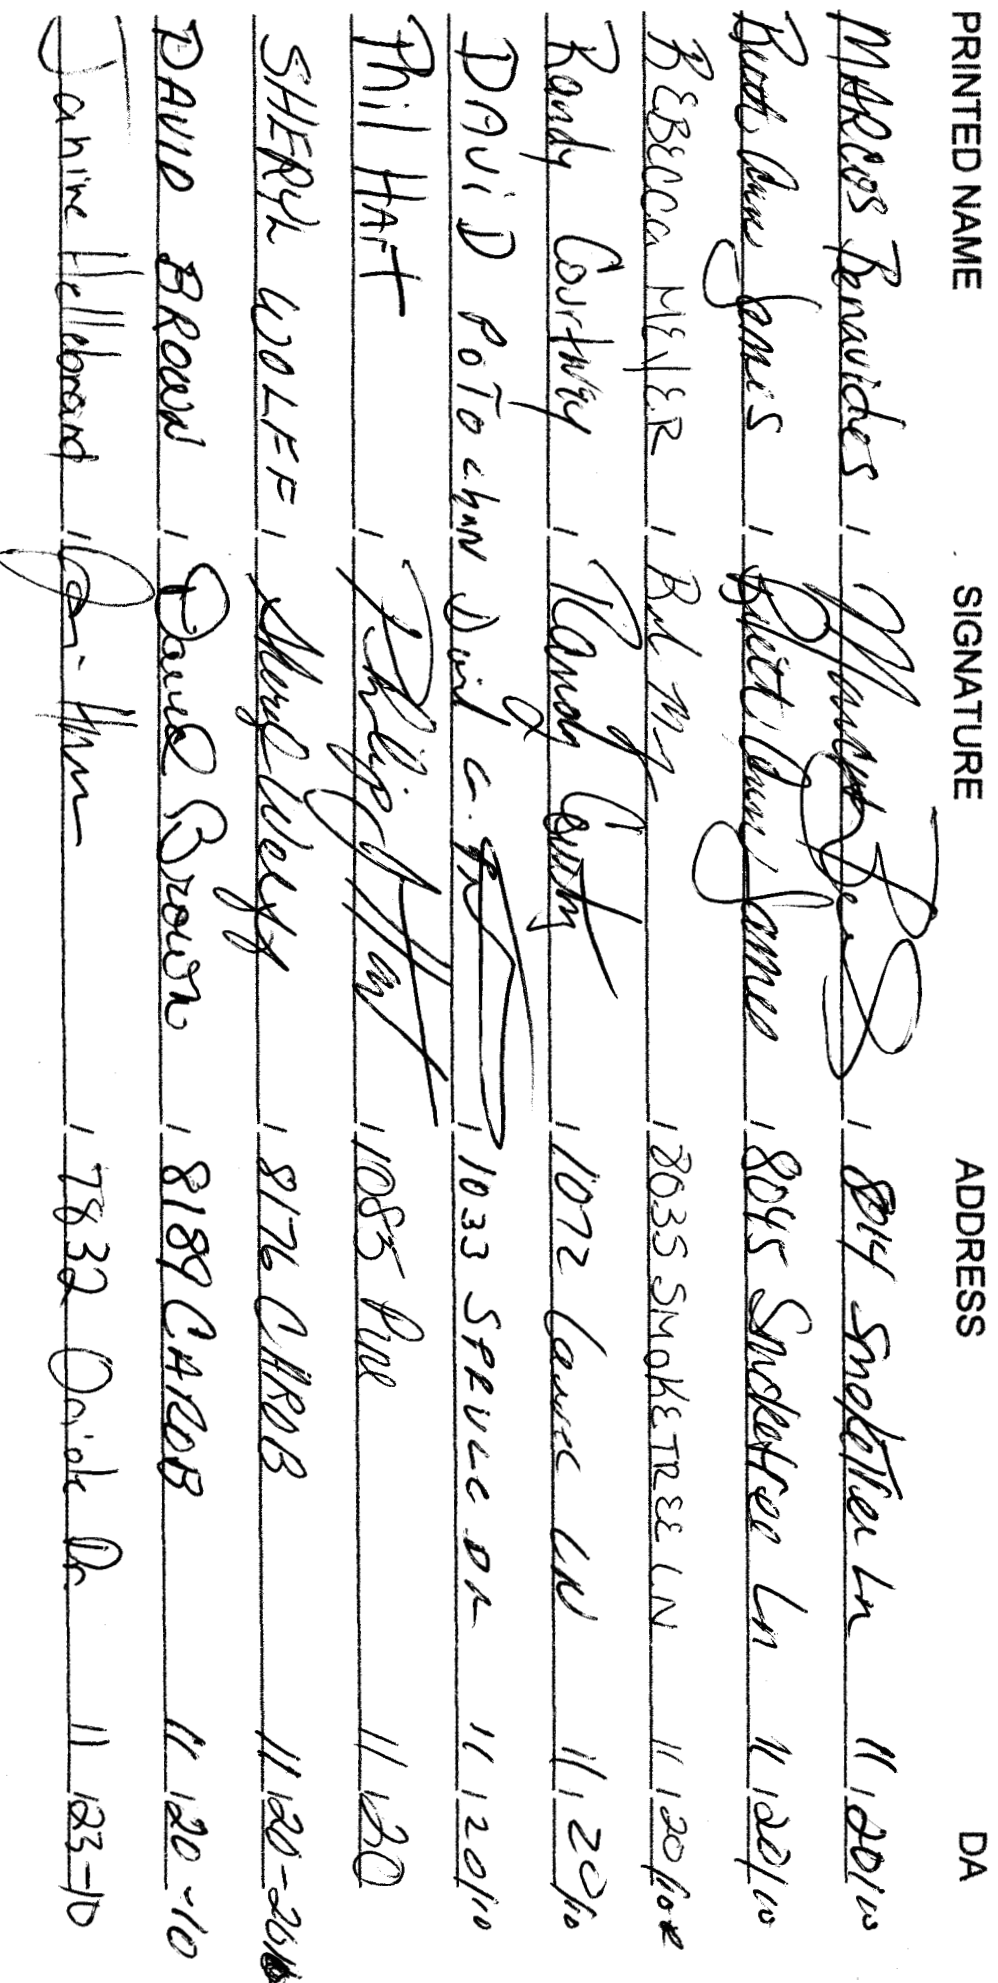 PRINTED NAME SIGNATURE ADDRESS DA
MARCOS Benavides 8014 Smoketree Ln 11/20/10
Ruth Ann James Ruth Ann James 8045 Smoketree Ln 11/20/10
REBECCA MEYER 8035 SMOKETREE LN 11/20/10
Randy Courtway Randy 1072 Laurel LN 11/20/10
DAViD POTOchnN David a. 1033 SPRUCE DR 11/20/10
Phil HAFT Philip Haft 1085 Pine 11/20
SHERYL WOLFF Sheryl Wolff 8176 CAROB 11/20-2010
DAVID BROWN David Brown 8189 CAROB 11/20-10
Janine Hellebrand 7832 Oriole Dr. 11/23-10